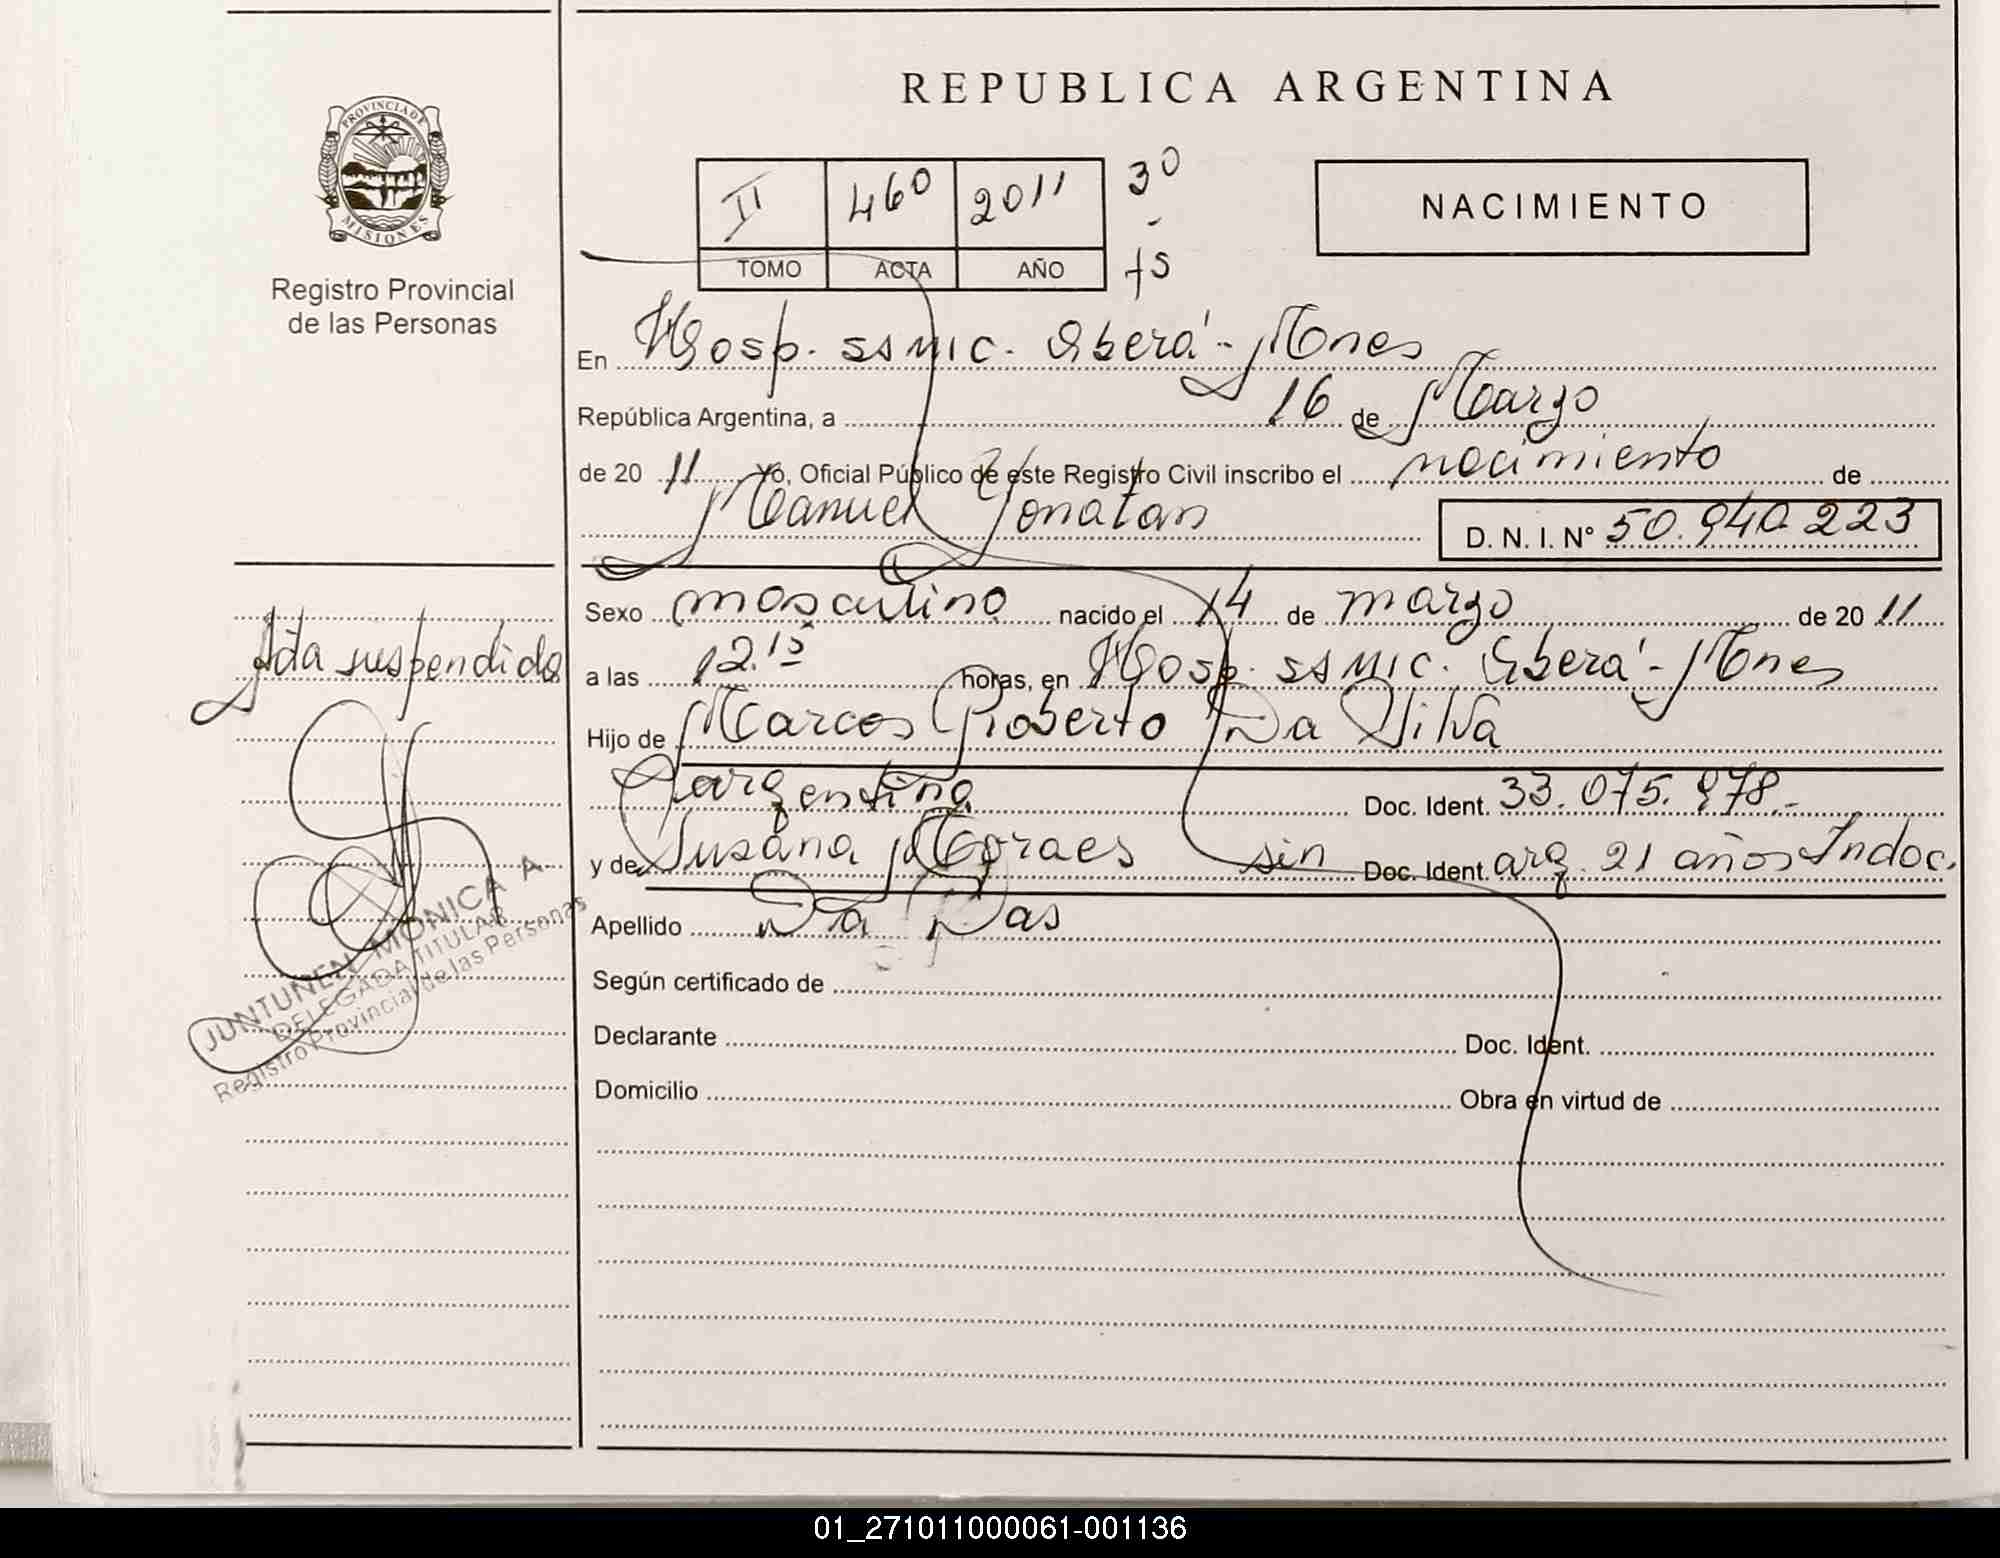 REPUBLICA ARGENTINA
PROVINCIA DE
MISIONES
Registro Provincial
de las Personas
II 460 2011 30
TOMO ACTA AÑO 75
NACIMIENTO
En Hosp. SSMIC. Oberá - Mnes
República Argentina, a 16 de Marzo
de 20 11 Yo, Oficial Público de este Registro Civil inscribo el nacimiento de
Manuel Yonatan D. N. I. Nº 50.940.223
Sexo masculino nacido el 14 de marzo de 20 11
a las 12.15 horas, en Hosp. SSMIC. Oberá - Mnes
Hijo de Marcos Roberto Da Silva
argentino Doc. Ident. 33.075.978.-
y de Susana Moraes sin Doc. Ident. arg. 21 años Indoc.
Apellido Da
Según certificado de
Declarante Doc. Ident.
Domicilio Obra en virtud de
suspendida
JUNTUNEN MONICA A.
DELEGADA TITULAR
Registro Provincial de las Personas
01_271011000061-001136